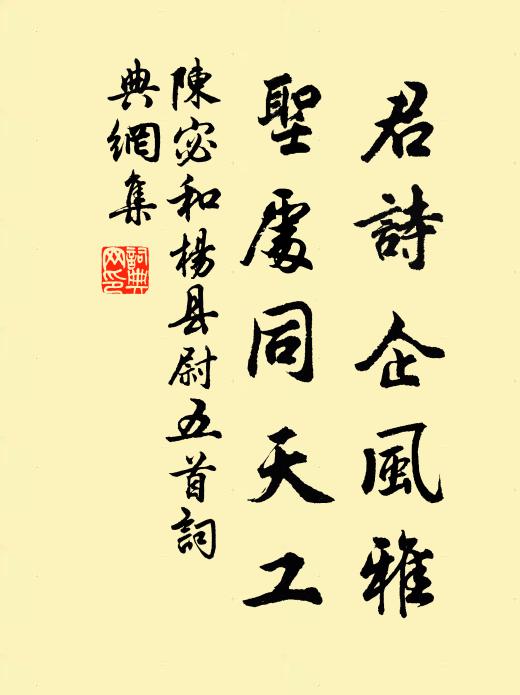 君詩企風雅
聖處同天工
陳宓和楊县尉五首詞
典網集
詞典
网印